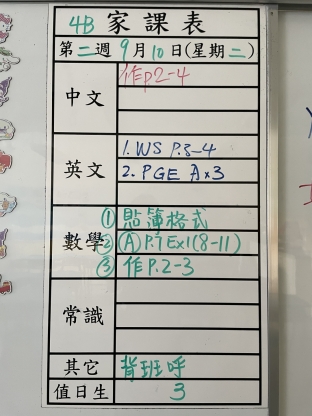 4B 家課表
第二週 9月10日(星期二)
中文 作p2-4
英文 1. WS P.3-4
2. PGE A×3
數學 ① 貼簿格式
② Ⓐ P.7 Ex1(8-11)
③ 作P.2-3
常識
其它 背班呼
值日生 3